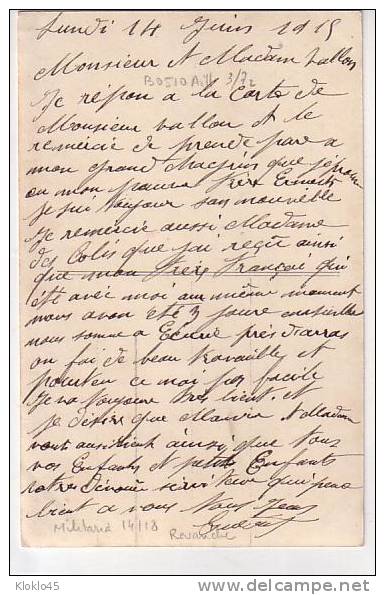 Lundi 14 Juin 1915
Monsieur et Madam Vallon
B0510 3/72
Je répon a la Carte de
Monsieur Vallon et le
remercie de prende pare a
mon grand chacrin que j'éprouve
ou mon pauvre Frère Ernest
je sui toujour san nouvelle
Je remercie aussi Madame
des Colis que j'ai reçit ainsi
que mon Frère Françoi qui
été avec moi au même moment
nous avon été 3 jours ensemble
nous somme a Ecurie près d'arras
on fai de beau travailles et
pourten ce nai pas facile
Je va toujours très bient et
je désire que Monsieur et Madam
vont aussi bient ainsi que tous
vos Enfants et petits Enfants
votre dévoué serviteur qui pense
bient a vous Tous Jean
Militaria 14/18
Revanche
Kloklo45
http://www.delcampe.net